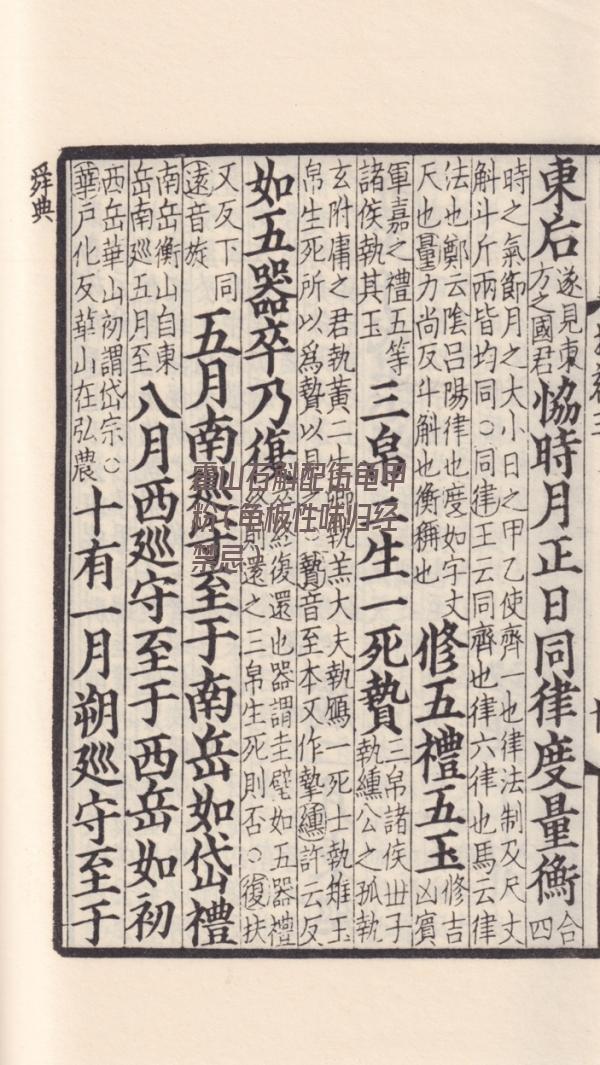 東后
遂見東
方之國君
協時月正日同律度量衡
合
四
時之氣節月之大小日之甲乙使齊一也律法制及尺丈
斛斗斤兩皆均同○同律王云同齊也律六律也馬云律
法也鄭云陰呂陽律也度如字丈
尺也量力尚反斗斛也衡稱也
修五禮五玉
修吉
凶賓
軍嘉之禮五等
諸侯執其玉
三帛二生一死贄
三帛諸侯世子
執纁公之孤執
玄附庸之君執黃二生卿執羔大夫執鴈一死士執雉玉
帛生死所以爲贄以見之○贄音至本又作摯纁許云反
如五器卒乃復
卒終復還也器謂圭璧如五器禮
終則還之三帛生死則否○復扶
又反下同
還音旋
五月南廵守至于南岳如岱禮
南岳衡山自東
岳南廵五月至
八月西廵守至于西岳如初
西岳華山初謂岱宗○
華戶化反華山在弘農
十有一月朔廵守至于
舜典
霍山石斛配伍龟甲
粉(龟板性味归经
禁忌)